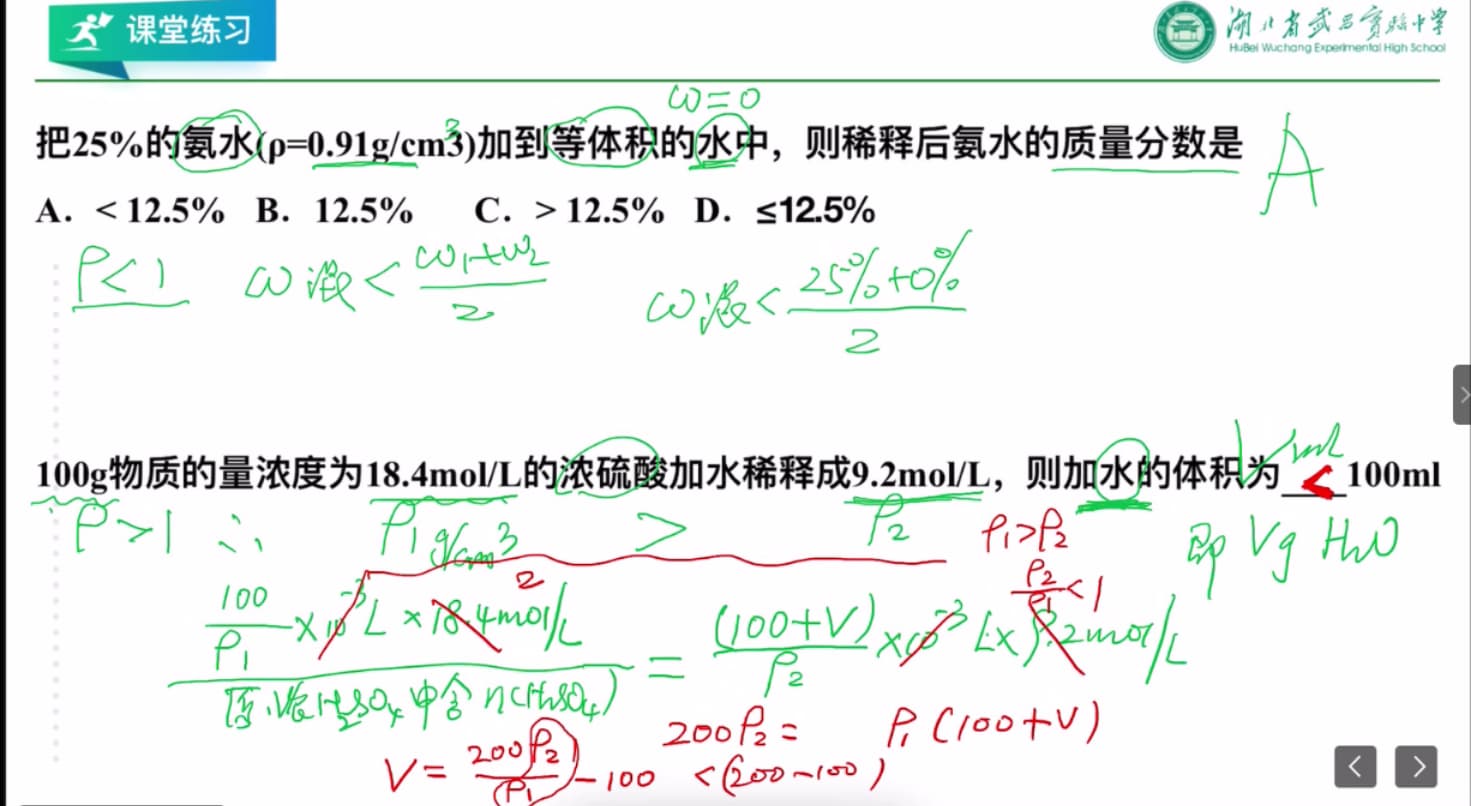 课堂练习
湖北省武昌实验中学
HuBei Wuchang Experimental High School
ω=0
把25%的氨水(ρ=0.91g/cm3)加到等体积的水中，则稀释后氨水的质量分数是 A
3
A．< 12.5% B．12.5% C．> 12.5% D．≤12.5%
ρ<1 ω混<(ω1+ω2)/2 ω混<(25%+0%)/2
Vml
100g物质的量浓度为18.4mol/L的浓硫酸加水稀释成9.2mol/L，则加水的体积为 < 100ml
ρ>1 ∴ ρ1 g/cm3 > ρ2 ρ1>ρ2 即 Vg H2O
ρ2/ρ1<1
2
100/ρ1 ×10-3L×18.4mol/L = (100+V)/ρ2 ×10-3L×9.2mol/L
原浓H2SO4中含n(H2SO4)
200ρ2= ρ1(100+V)
V=200ρ2/ρ1-100 <(200-100)